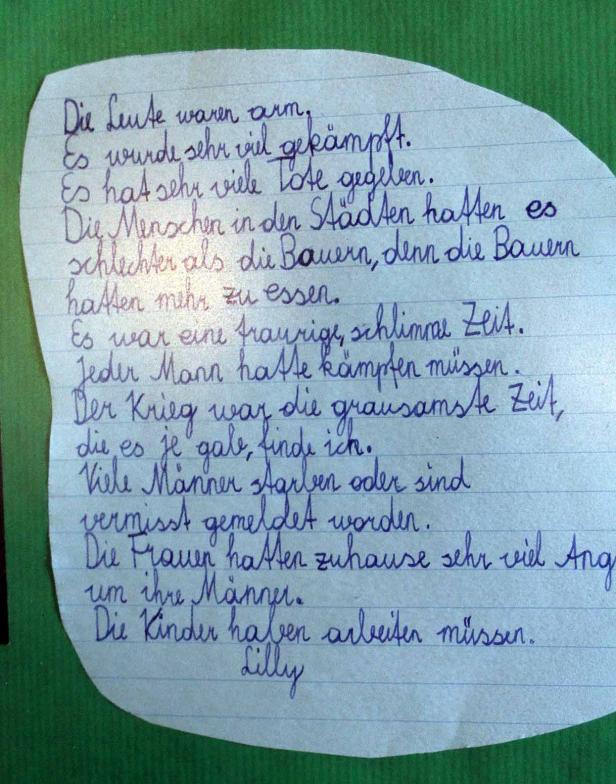 Die Leute waren arm.
Es wurde sehr viel gekämpft.
Es hat sehr viele Tote gegeben.
Die Menschen in den Städten hatten es
schlechter als die Bauern, denn die Bauern
hatten mehr zu essen.
Es war eine traurige, schlimme Zeit.
Jeder Mann hatte kämpfen müssen.
Der Krieg war die grausamste Zeit,
die es je gab, finde ich.
Viele Männer starben oder sind
vermisst gemeldet worden.
Die Frauen hatten zuhause sehr viel Ang
um ihre Männer.
Die Kinder haben arbeiten müssen.
Lilly